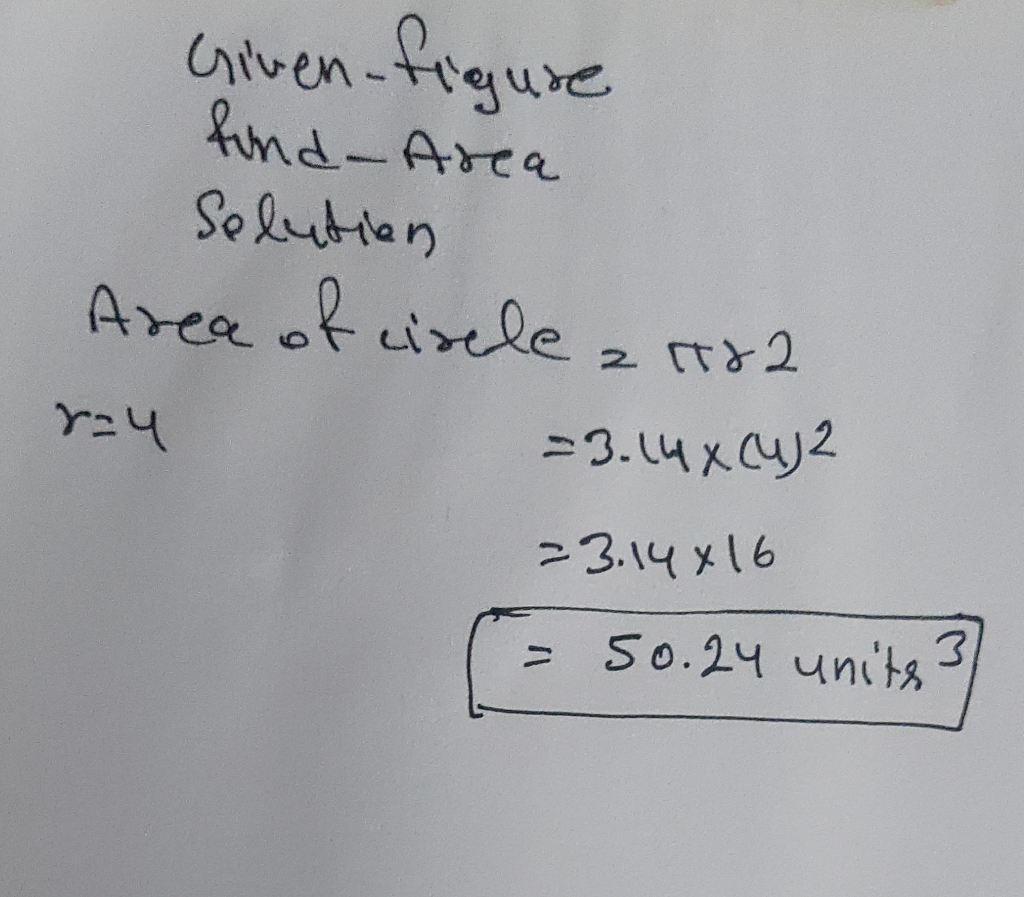 Given - figure
find - Area
Solution
Area of circle = πr2
r=4
=3.14x(4)2
=3.14x16
= 50.24 units 3